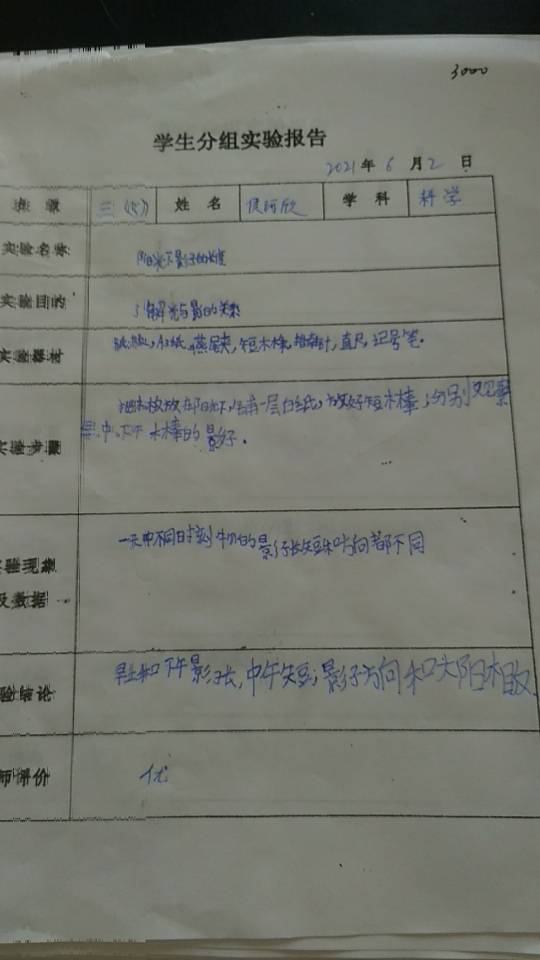 3000
学生分组实验报告
2021年 6 月 2 日
班 级 三 姓 名 学 科 科学
实验名称 阳光下影子的长度
实验目的 了解光与影的关系
实验器材 纸板,A3纸,燕尾夹,短木棒,指南针,直尺,记号笔。
实验步骤 把木板放在阳光下,铺一层白纸,放好短木棒,分别观察
早、中、下午木棒的影子。
实验现象 一天中不同时刻物的影子长短和方向都不同
及数据
验结论 早上和下午影子长,中午短;影子方向和太阳相反
师评价 优